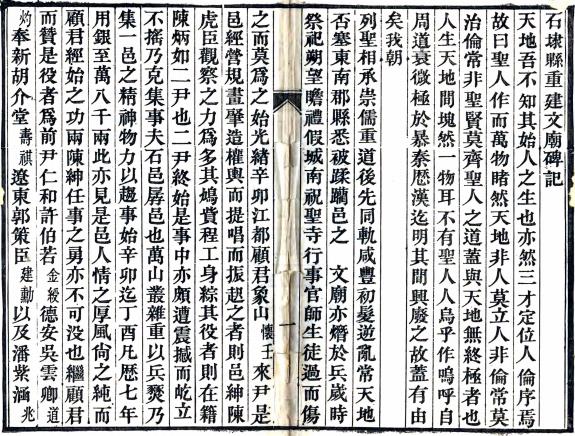 石埭縣重建文廟碑記
天地吾不知其始人之生也亦然三才定位人倫序焉
故曰聖人作而萬物睹然天地非人莫立人非倫常莫
治倫常非聖賢莫齊聖人之道蓋與天地無終極者也
人生天地間塊然一物耳不有聖人人烏乎作嗚呼自
周道衰微極於暴秦歷漢迄明其間興廢之故蓋有由
矣我朝
列聖相承崇儒重道後先同軌咸豐初髮逆亂常天地
否塞東南郡縣悉被蹂躪邑之 文廟亦燬於兵歲時
祭祀朔望瞻禮假城南祝聖寺行事官師生徒過而傷
之而莫為之始光緒辛卯江都顧君象山懷壬來尹是
邑經營規畫肇造權輿而提唱而振趐之者則邑紳陳
虎臣觀察之力為多其鳩貲程工身綜其役者則在籍
陳炳如二尹也二尹終始是事中亦頗遭震撼而屹立
不搖乃克集事夫石邑孱邑也萬山叢雜重以兵燹乃
集一邑之精神物力以趨事始辛卯迄丁酉凡歷七年
用銀至萬八千兩此亦見是邑人情之厚風尚之純而
顧君經始之功兩陳紳任事之勇亦不可沒也繼顧君
而贊是役者為前尹仁和許伯若金綬德安吳雲卿道
灼奉新胡介堂壽祺遼東郭策臣建勳以及潘紫涵兆